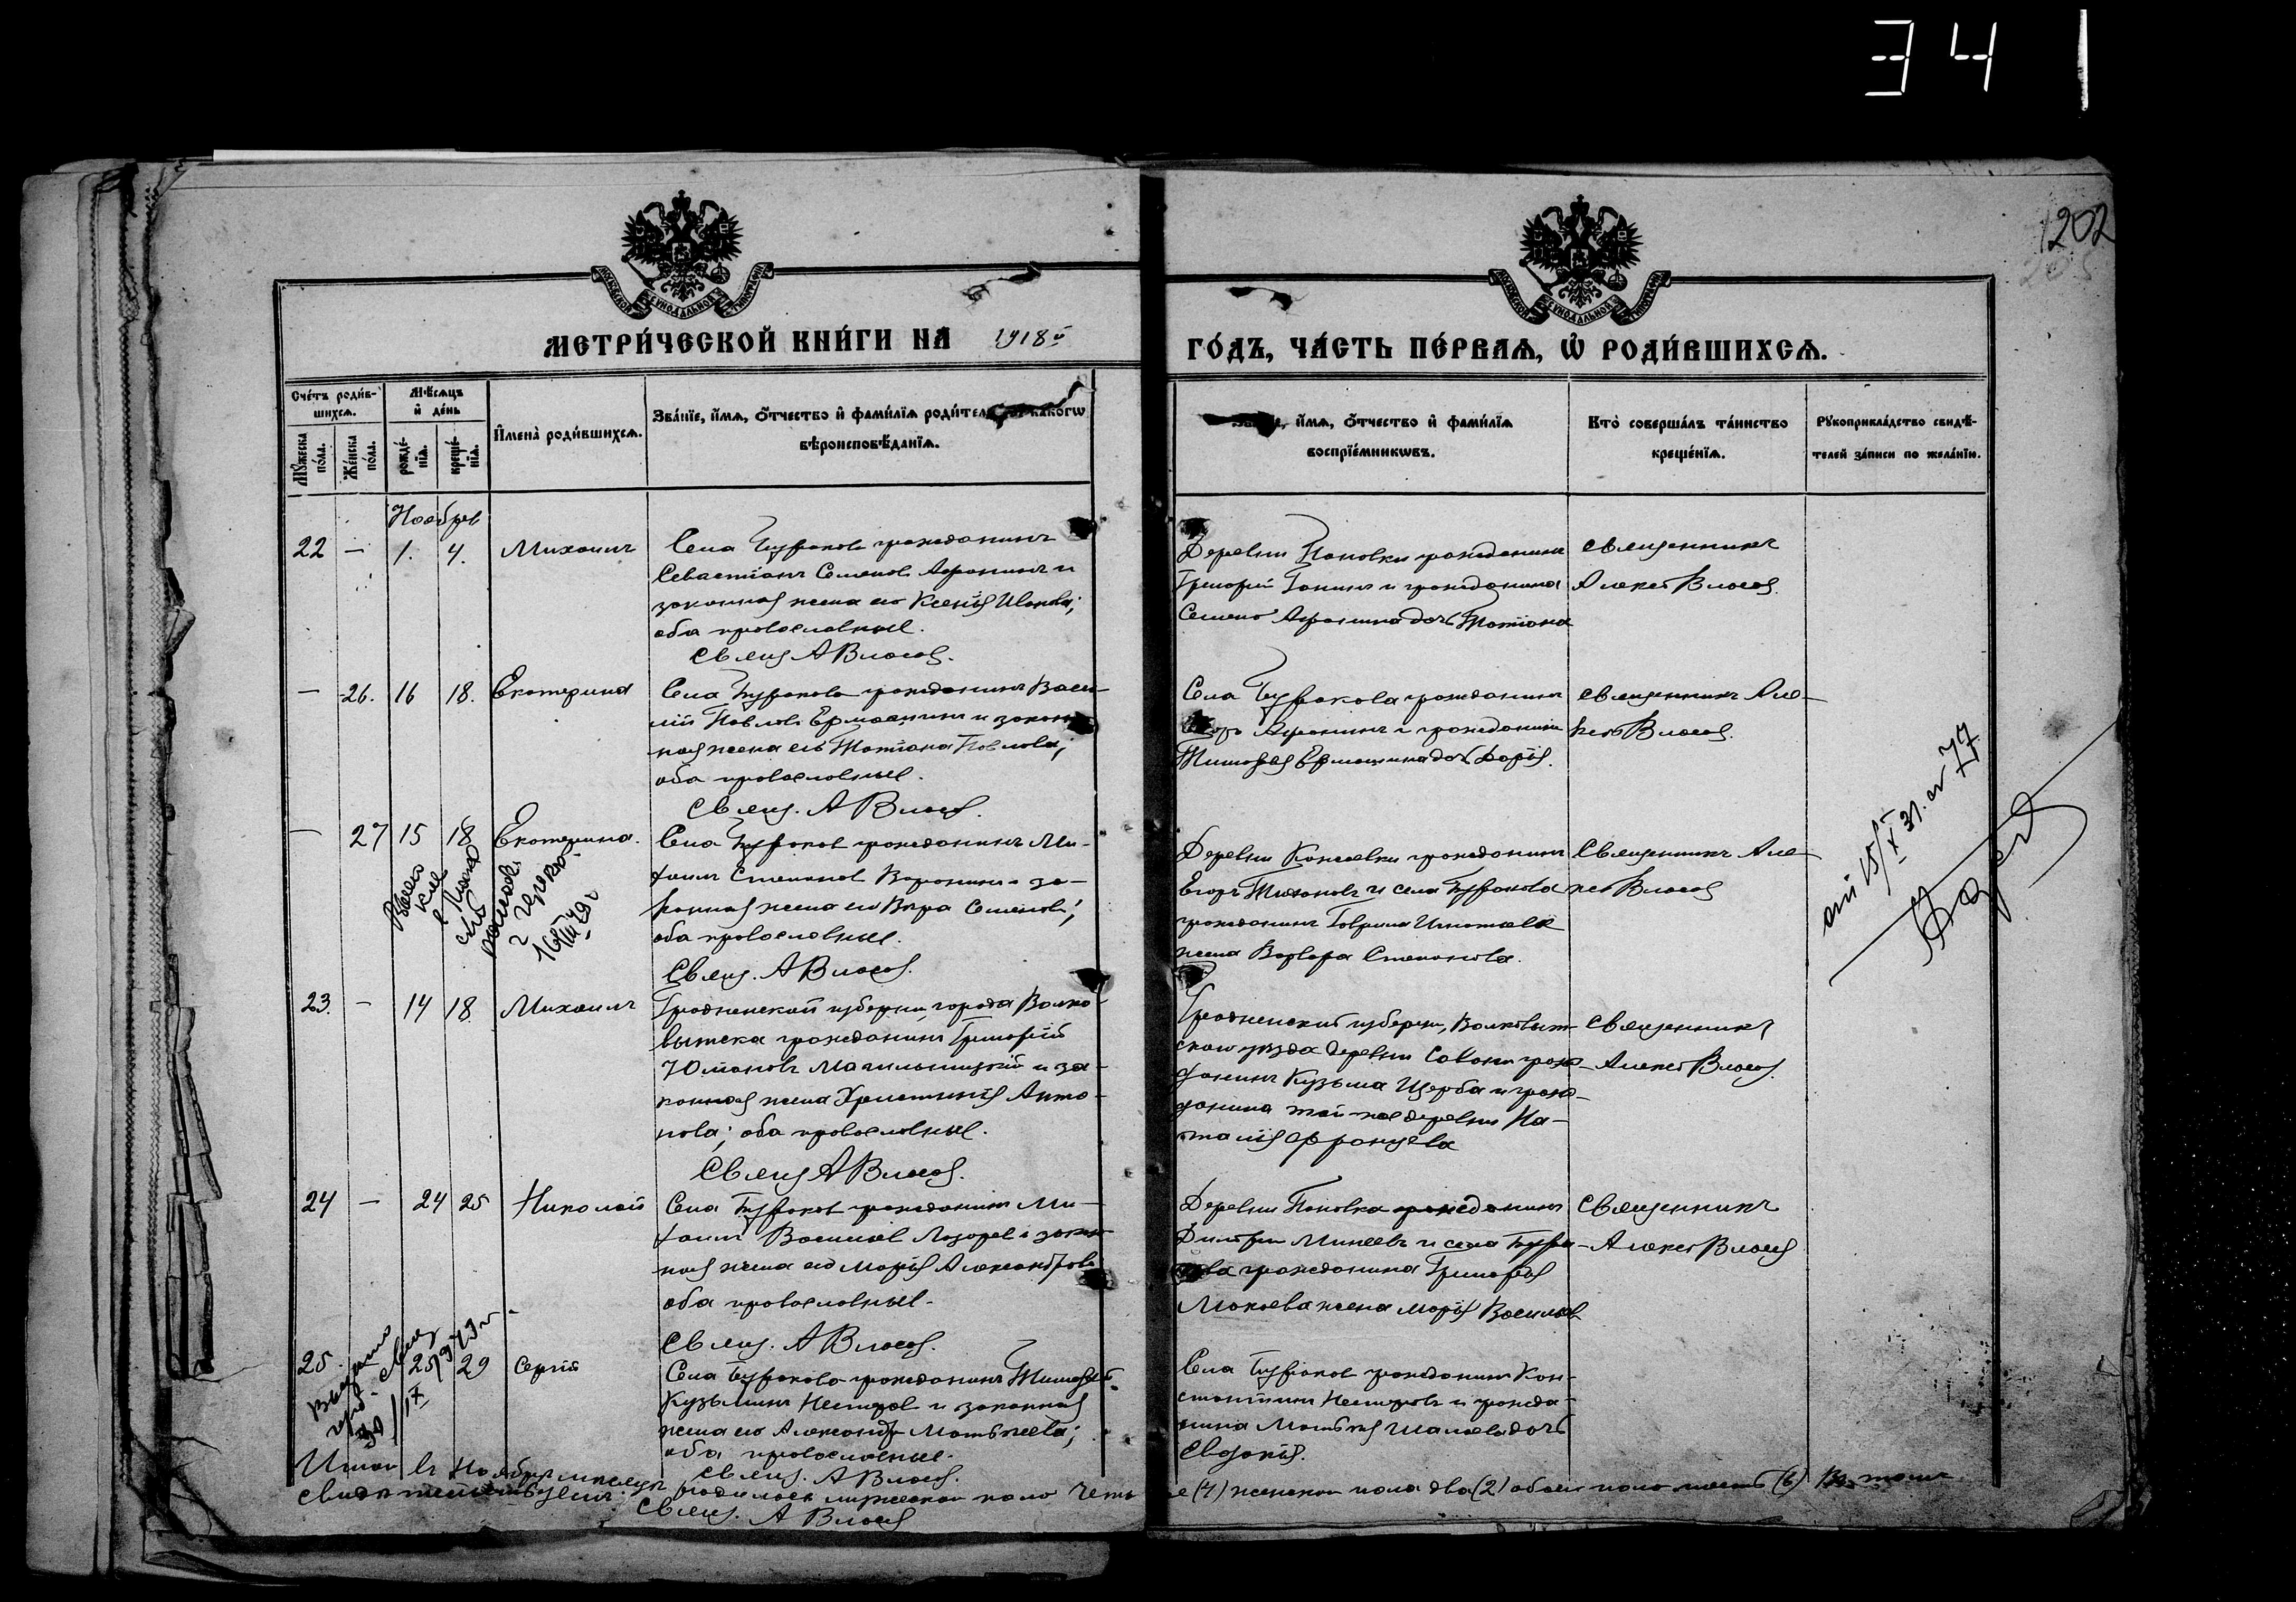 341
1202
МОСКОВСКОЙ СУНОДАЛЬНОЙ ТИПОГРАФІИ
МОСКОВСКОЙ СУНОДАЛЬНОЙ ТИПОГРАФІИ
МЕТРИ́ЧЕСКОЙ КНИ́ГИ НА 1918й
ГО́ДЪ, ЧА́СТЬ ПЕ́РВАѦ, Ѡ҆ РОДИ́ВШИХСѦ.
Сче́тъ роди́в-
шихсѧ.
Мѣ́сѧцъ
и҆ де́нь
Мꙋ́жеска
по́ла.
Же́нска
по́ла.
рожде́-
нїѧ.
креще́-
нїѧ.
И҆мена̀ роди́вшихсѧ.
Зва́нїе, и҆́мѧ, о҆́тчество и҆ фами́лїѧ роди́тел какогѡ
вѣроисповѣ́данїѧ.
и҆́мѧ, о҆́тчество и҆ фами́лїѧ
воспрїе́мникѡвъ.
Кто̀ соверша́лъ та́инство
креще́нїѧ.
Рꙋкоприкла́дство свидѣ́-
телей за́писи по жела́нїю.
Ноябрь
22 — 1. 4. Михаилъ
Села гражданинъ
Севастіанъ Семеновъ Афонинъ и
законная жена его Ксенія Иванова;
оба православные.
Свящ А Власов.
Деревни Поповки гражданинъ
Григорій Ганинъ и гражданина
Семена Афонина дочь Татіана
священникъ
Алексей Власов.
— 26. 16 18. Екатерина
Села гражданинъ Васи-
лій Павловъ Ермошинъ и закон-
ная жена его Татіана Павлова;
оба православные.
Свящ. А Власов.
Села гражданинъ
Афонинъ и гражданина
Тимофея Ермошина дочь Дарія.
священникъ Але-
ксей Власов.
— 27 15 18 Екатерина.
16/III 49 г
Села гражданинъ Ми-
хаилъ Степановъ Воронинъ и за-
конная жена его Вѣра Семенова;
оба православные.
Свящ. А Власов.
Деревни гражданинъ
Егоръ Тихоновъ и села
гражданина Гавріила Игнатьева
жена Варвара Степанова.
Священникъ Але-
ксей Власов
15/X 31. 77
23. — 14 18. Михаилъ
Гродненской губерніи, города Волко-
выска гражданинъ Григорій
Юліановъ и за-
конная жена Христинія Анто-
нова; оба православные.
Свящ А Власов.
Гродненской губерніи, Волковыс-
скаго уѣзда деревни граж-
данинъ Кузьма Щерба и граж-
данина той же деревни На-
талія Францева
Священникъ
Алексей Власов.
24 — 24 25 Николай
Села гражданинъ Ми-
хаилъ Васильевъ Лазаревъ и закон-
ная жена его Марія Александрова
оба православные.
Свящ. А Власов.
Деревни Поповка гражданинъ
Дмитрій Минеевъ и села
гражданина Григорія
жена Марія Васильев
Священникъ
Алексей Власов
25. 25 29 Сергій
Села гражданинъ Тимофей
Кузьминъ и законная
жена его Александра Матвѣева;
оба православные.
Свящ. А Власов.
Села гражданинъ Кон-
стантинъ и гражда-
нина Матвѣя дочь
Евдокія.
Итого въ Ноябрѣ мѣсяцѣ родилось мужескаго пола четыре (4) женскаго пола два (2) обоего пола шесть (6) Въ томъ
свидѣтельствуемъ
Свящ. А Власов